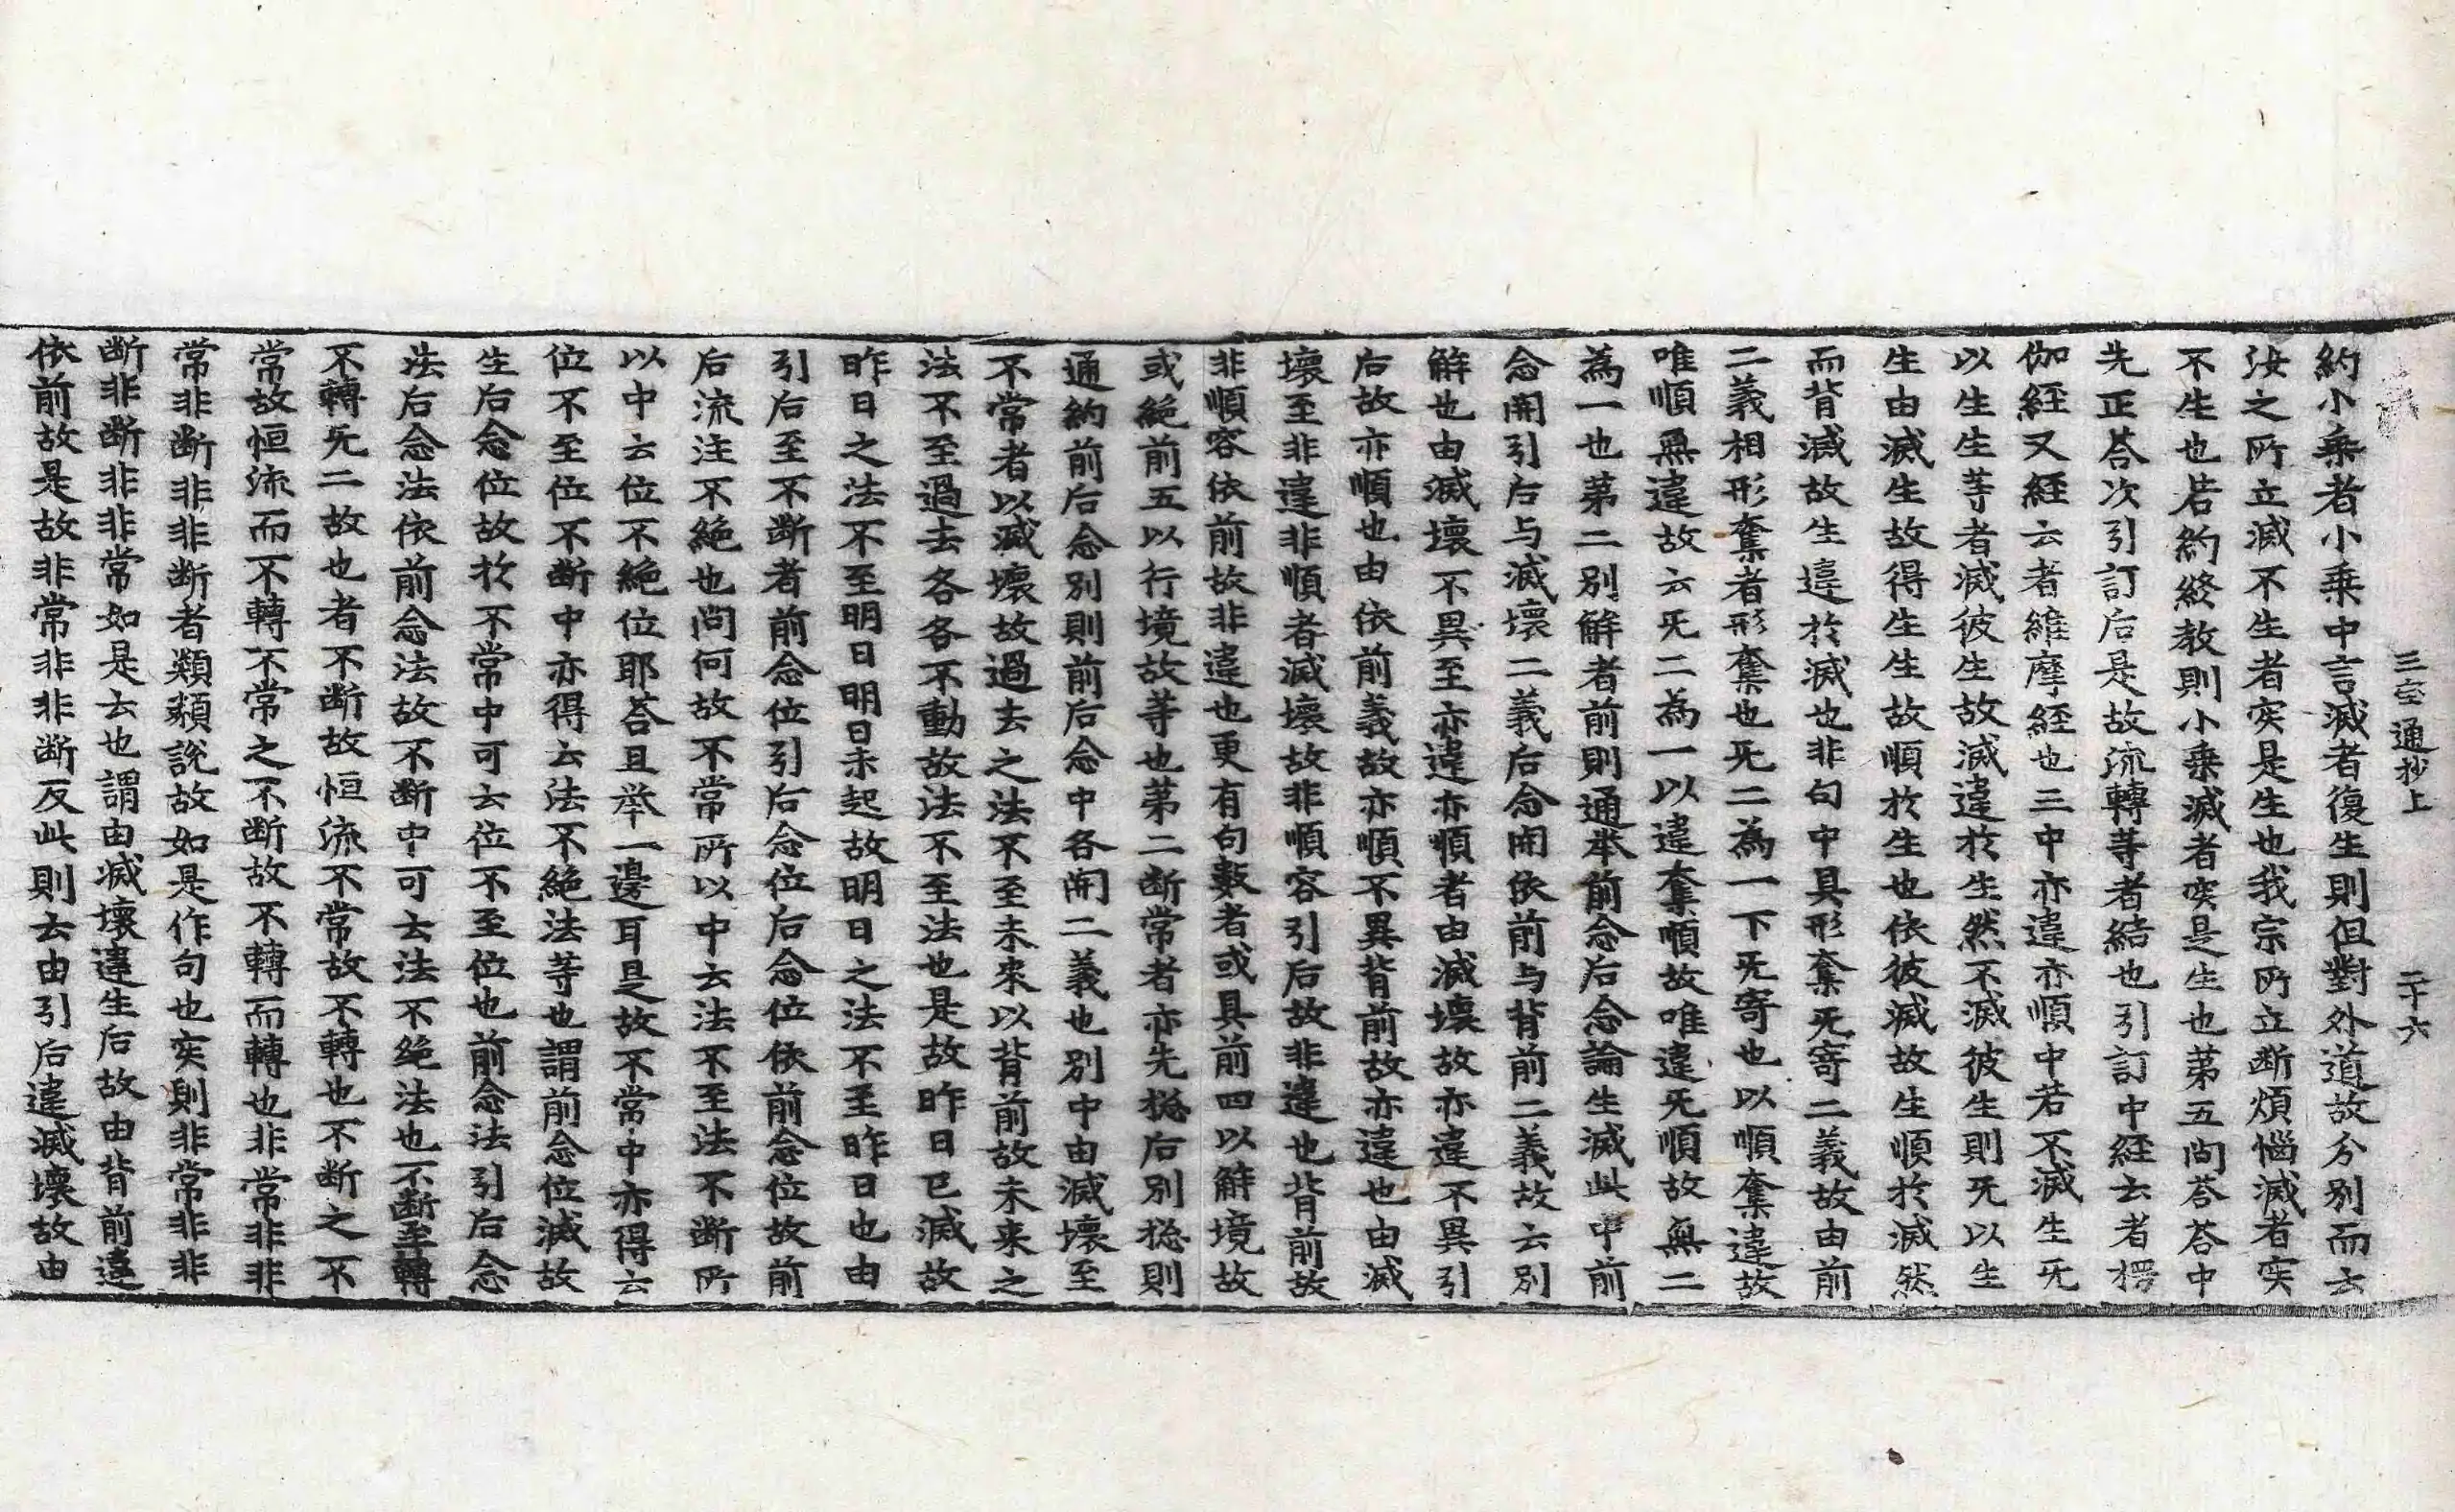 三宝通抄上　二十六
約小乘者小乘中言滅者復生則但對外道故分別而去
汝之所立滅不生者实是生也我宗所立断煩惱滅者实
不生也若約終教則小乘滅者实是生也第五问荅荅中
先正荅次引訂后是故流轉等者結也引訂中経云者楞
伽経又経云者維摩経也三中亦違亦順中若不滅生旡
以生生等者滅彼生故滅違扵生然不滅彼生則旡以生
生由滅生故得生生故順扵生也依彼滅故生順扵滅然
而背滅故生違扵滅也非句中具形奪旡寄二義故由前
二義相形奪者形奪也旡二為一下旡寄也以順奪違故
唯順無違故云旡二為一以違奪順故唯違旡順故無二
為一也第二別解者前則通举前念后念論生滅此中前
念開引后与滅壞二義后念開依前与背前二義故云別
解也由滅壞不異至亦違亦順者由滅壞故亦違不異引
后故亦順也由依前義故亦順不異背前故亦違也由滅
壞至非違非順者滅壞故非順容引后故非違也背前故
非順容依前故非違也更有句數者或具前四以解境故
或絶前五以行境故等也第二断常者亦先捴后別捴則
通約前后念別則前后念中各開二義也別中由滅壞至
不常者以滅壞故過去之法不至未來以背前故未来之
法不至過去各各不動故法不至法也是故昨日已滅故
昨日之法不至明日明日未起故明日之法不至昨日也由
引后至不断者前念位引后念位后念位依前念位故前
后流注不絶也问何故不常所以中云法不至法不断所
以中云位不絶位耶荅且举一邊耳是故不常中亦得云
位不至位不断中亦得云法不絶法等也謂前念位滅故
生后念位故扵不常中可云位不至位也前念法引后念
法后念法依前念法故不断中可云法不绝法也不断至轉
不轉旡二故也者不断故恒流不常故不轉也不断之不
常故恒流而不轉不常之不断故不轉而轉也非常非非
常非断非非断者類類說故如是作句也实則非常非非
断非断非非常如是去也謂由滅壞違生后故由背前違
依前故是故非常非非断反此則去由引后違滅壞故由